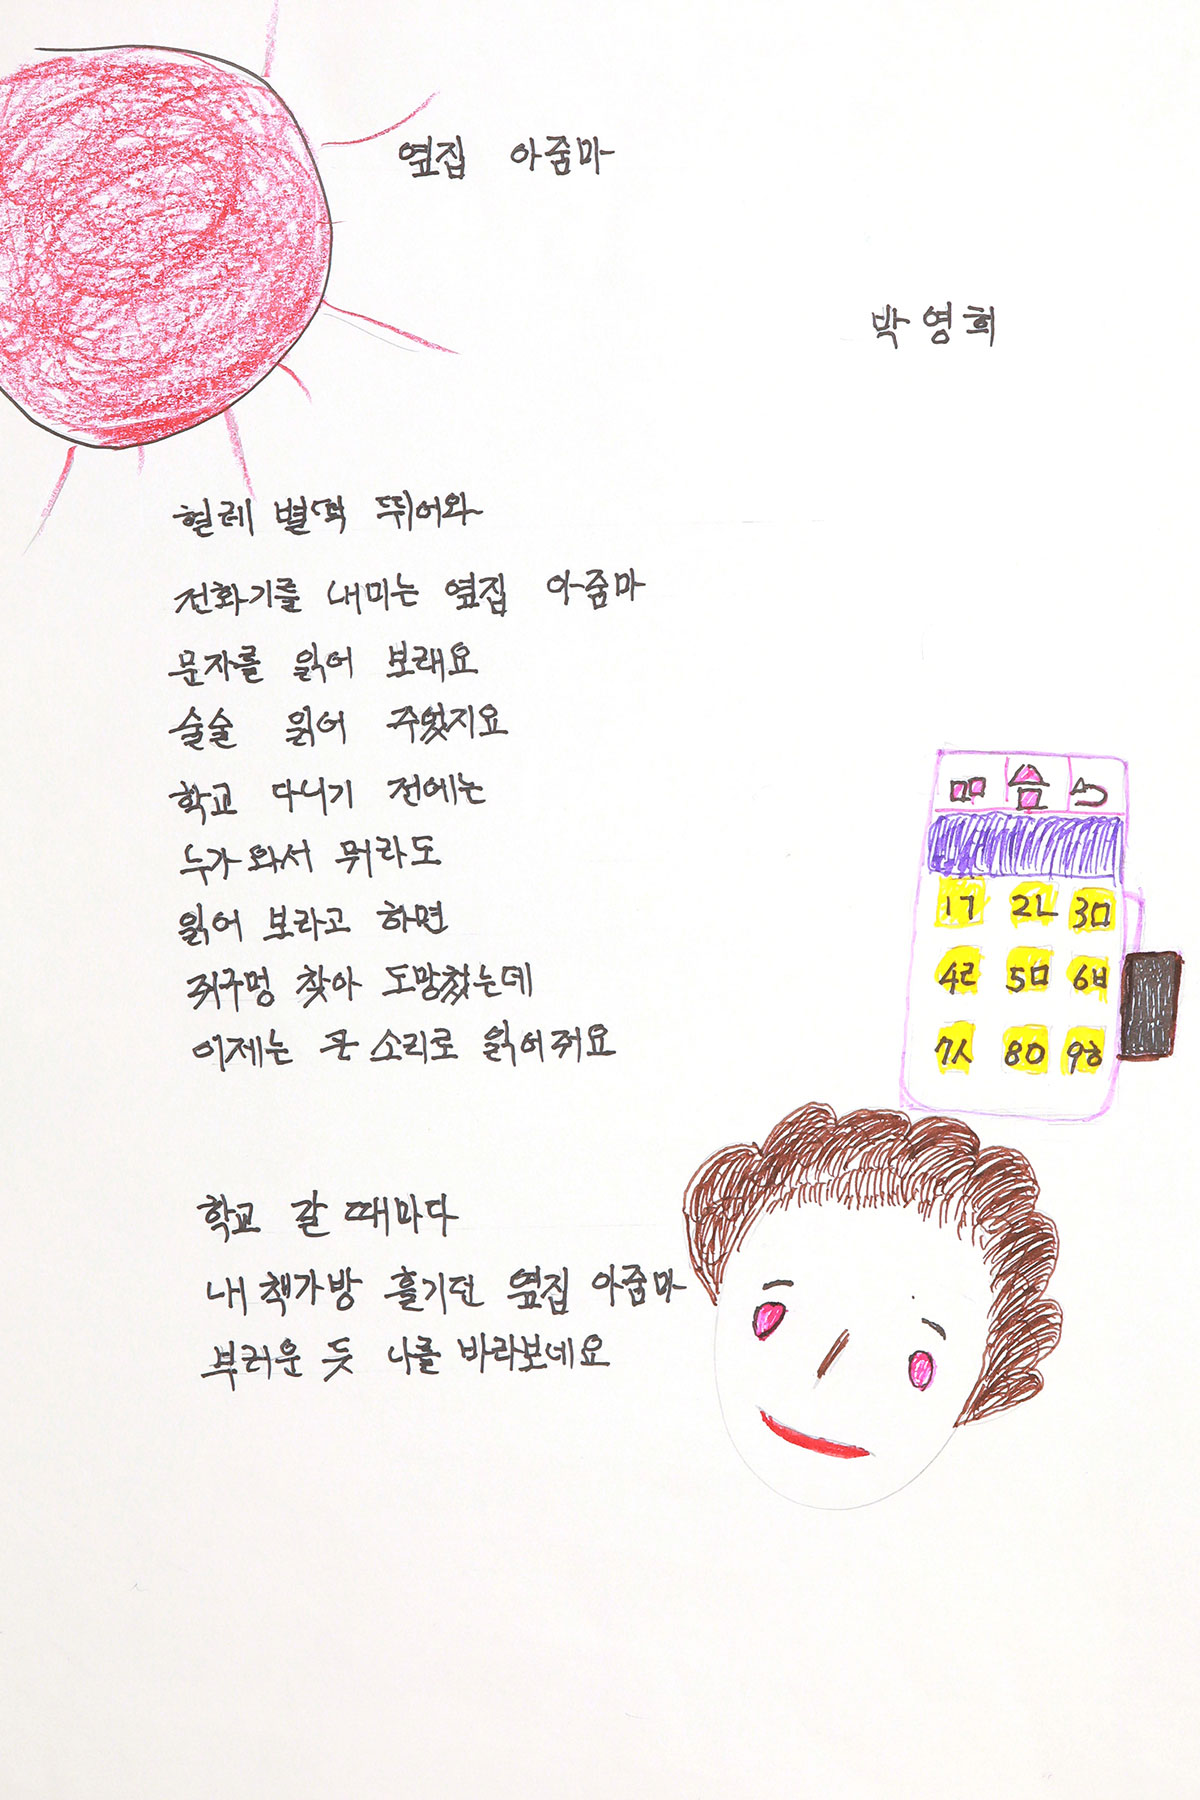 옆집 아줌마
박영희
헐레 벌떡 뛰어와
전화기를 내미는 옆집 아줌마
문자를 읽어 보래요
술술 읽어 주었지요
학교 다니기 전에는
누가 와서 뭐라도
읽어 보라고 하면
쥐구멍 찾아 도망쳤는데
이제는 큰 소리로 읽어줘요
1ㄱ 2ㄴ 3ㅁ
4ㄹ 5ㅁ 6ㅂ
7ㅅ 8ㅇ 9ㅎ
학교 갈 때마다
내 책가방 흘기던 옆집 아줌마
부러운 듯 나를 바라보네요